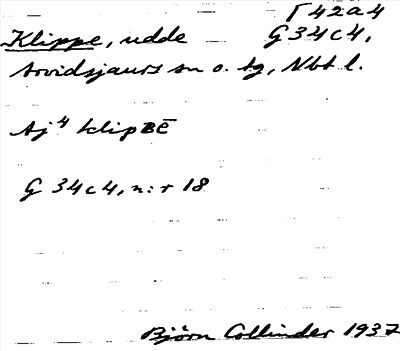 Γ 42a4
Klippe, udde G34c4,
Arvidsjaurs sn o. tg, Nbt l.
Aj⁴ klipʙē
G 34c4, n:r 18
Björn Collinder 1937